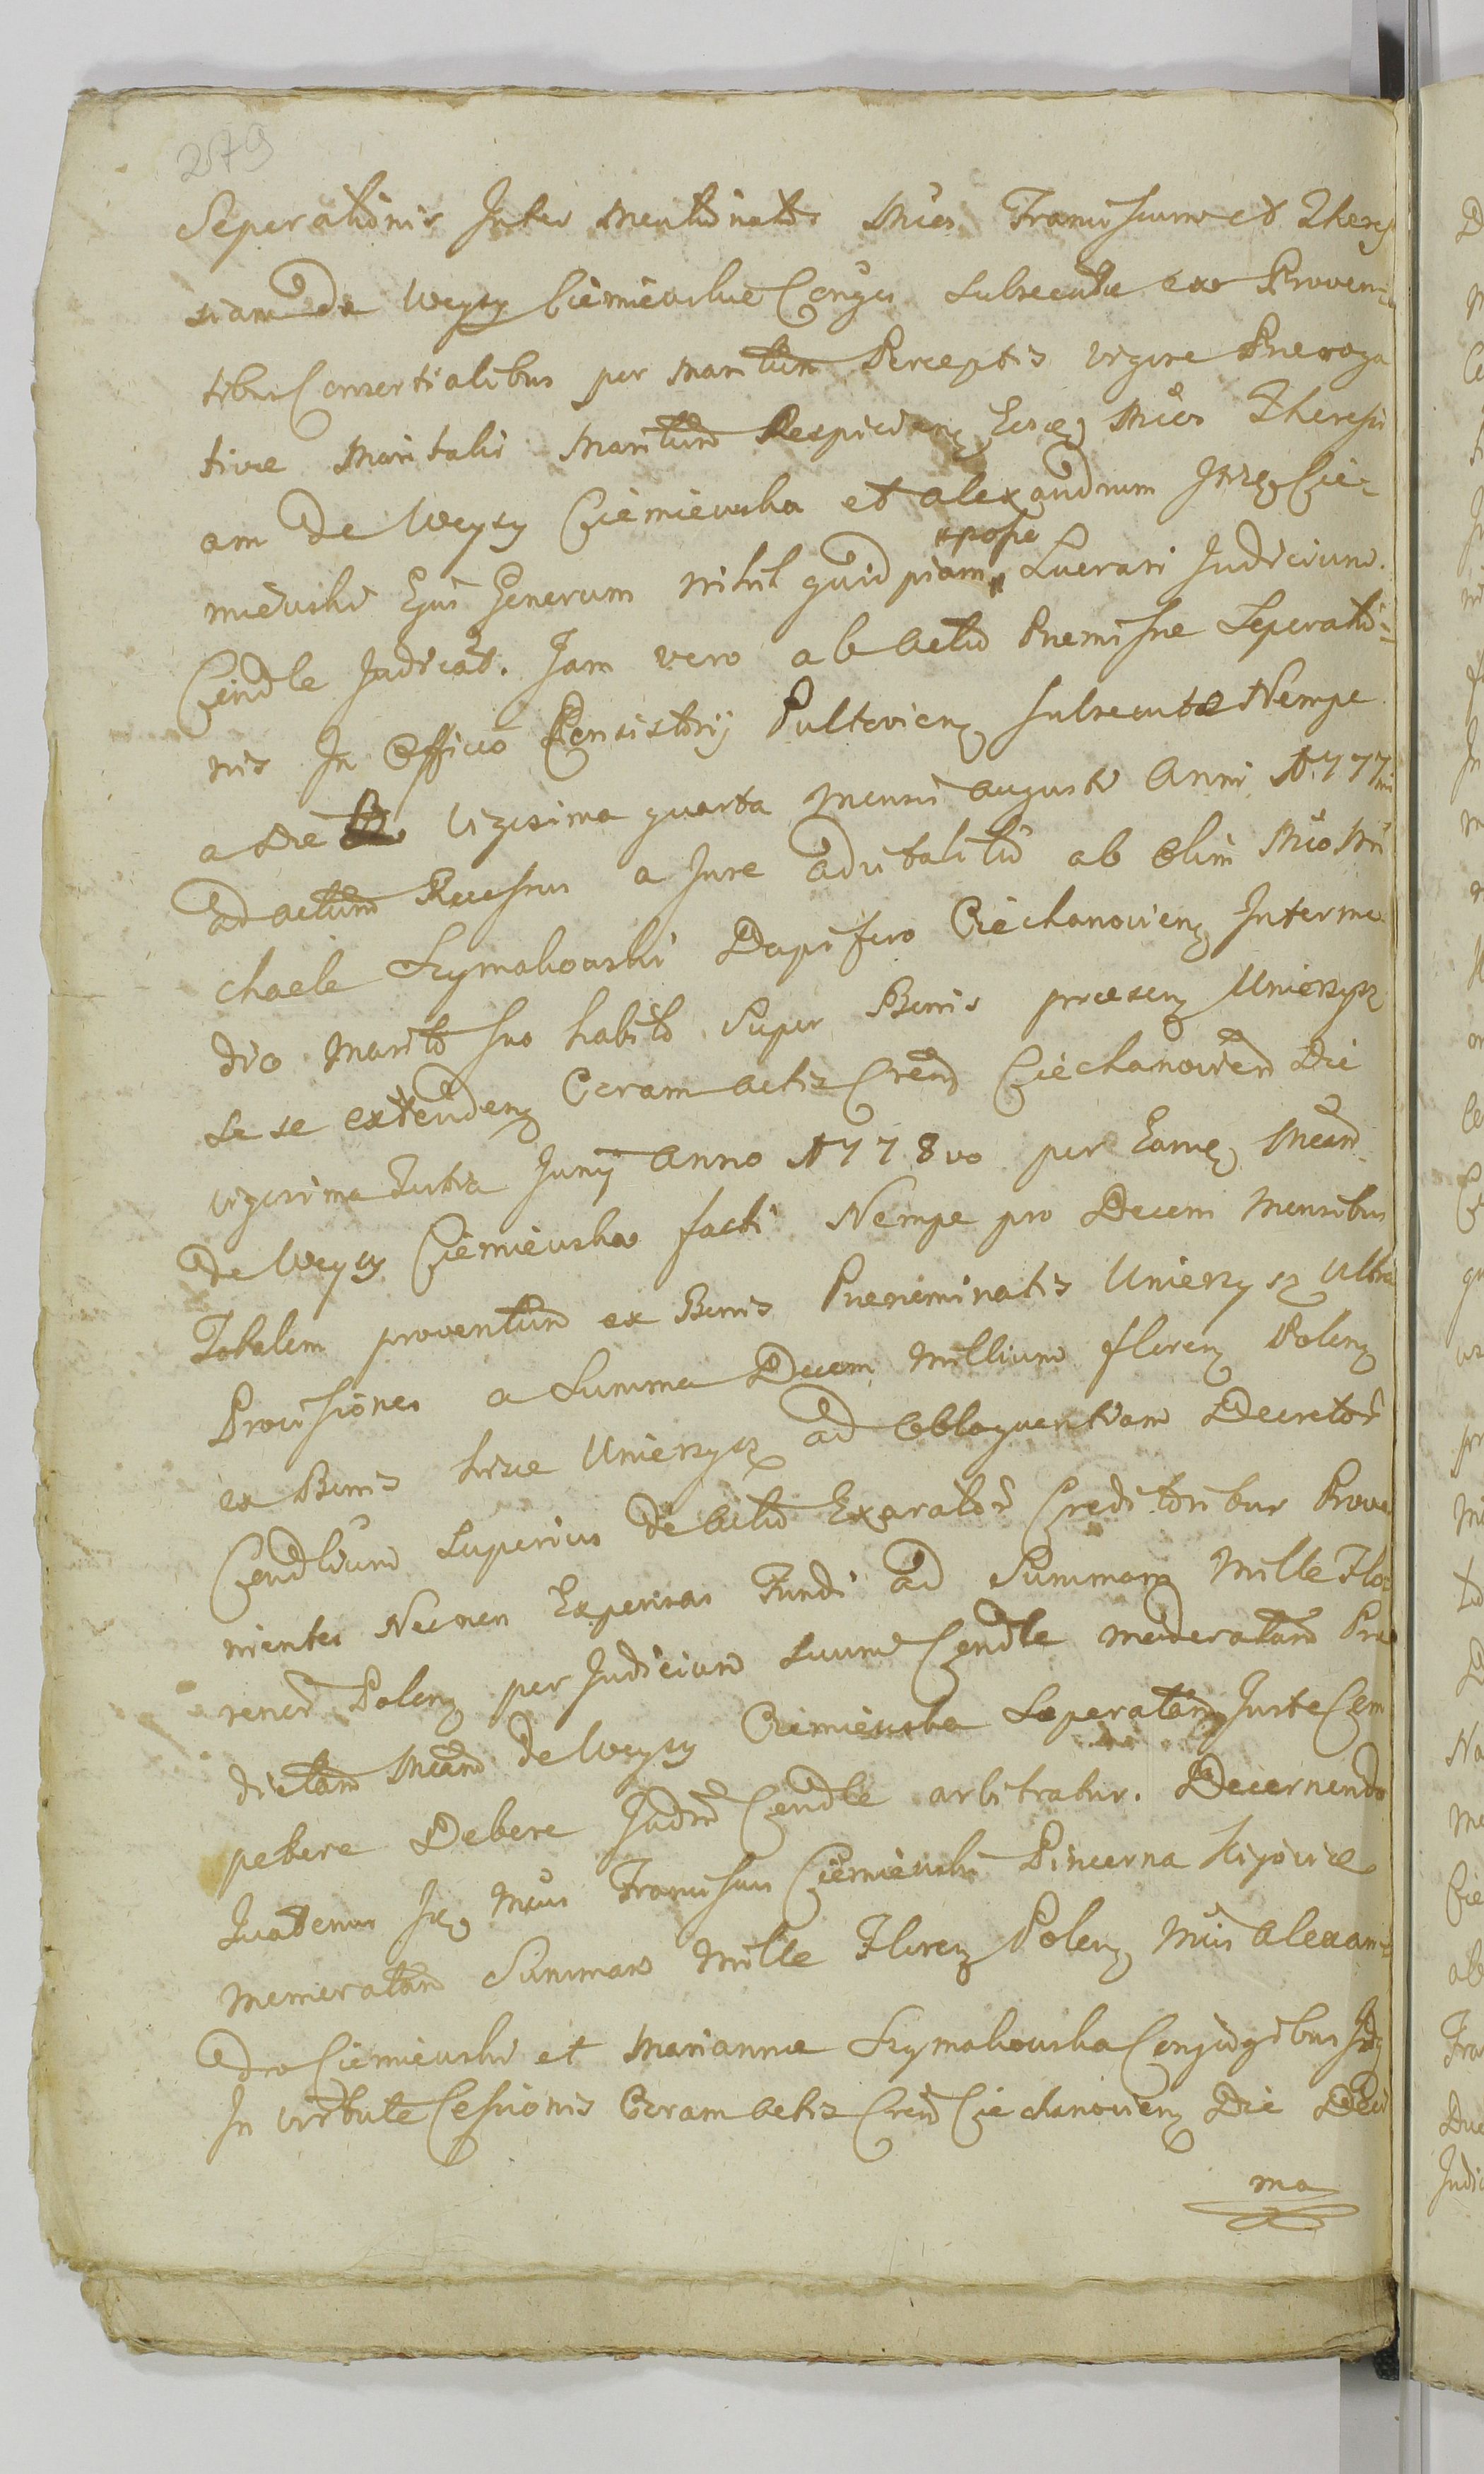 279
Seperationis Inter mentionatos Mcos Franciscum et There,
siam de Weysy Ciemiewskie Conjges subsecutae ex Proven=
tibus Consertialibus per maritum Perceptis vigore Praeroga
tivae Maritalis Maritum Respicienz Eosq Mcos Theresi
am de Weysy Ciemiewska et Alexandrum Itidz Cie=
miewski Ejus Generum nihil quidpiam posse Lucrari Judicium
Cendle Judicat. Jam vero ab actu Praemissae Seperatio=
nis In Officio Consistorij Pultovienz subsecutae Nempe
a die vigesima quarta mensis Augusti Anni 1777mi
ad actum Recessus a Jure advitalitio ab olim Mco Mi
chaele Szymakowski Dapifero Ciechanovienz Interme
dio Marito suo habito Super Bonis praesenz Unierzysz
se se extendenz Coram actis Crend Ciechanoviend Die
vigesima Tertia Junij Anno 1778vo per Eamq Mcam
de Weysy Ciemiewska facti Nempe pro Decem Mensibus
Totalem proventum ex Bonis Praenominatis Unierzysz Ultra
Provisiones a Summa Decem Millium florenz Polenz
ex Bonis hisce Unierzysz ad obloquentiam Decretor
Cendlium Superius de actu Exarator Creditoribus Prove
nientes Necnon Expensas Fundi ad Summam Mille Flo=
renor Polenz per Judicium suum Cendle moderatam Prae
dictam Mcam de Weysy Ciemiewska Seperatam Juste Com
petere Debere Judm Cendle arbitratur. Decernendo
Quatenus Mcus Franciscus Ciemiewski Pincerna Kijoviae
memoratam Summam Mille Florenz Polenz Mcis Alexan=
dro Ciemiewski et Marianna Szymakowska Conjugibus
In virtute Cessionis Coram actis Crend Ciechanovienz Die Deci
ma